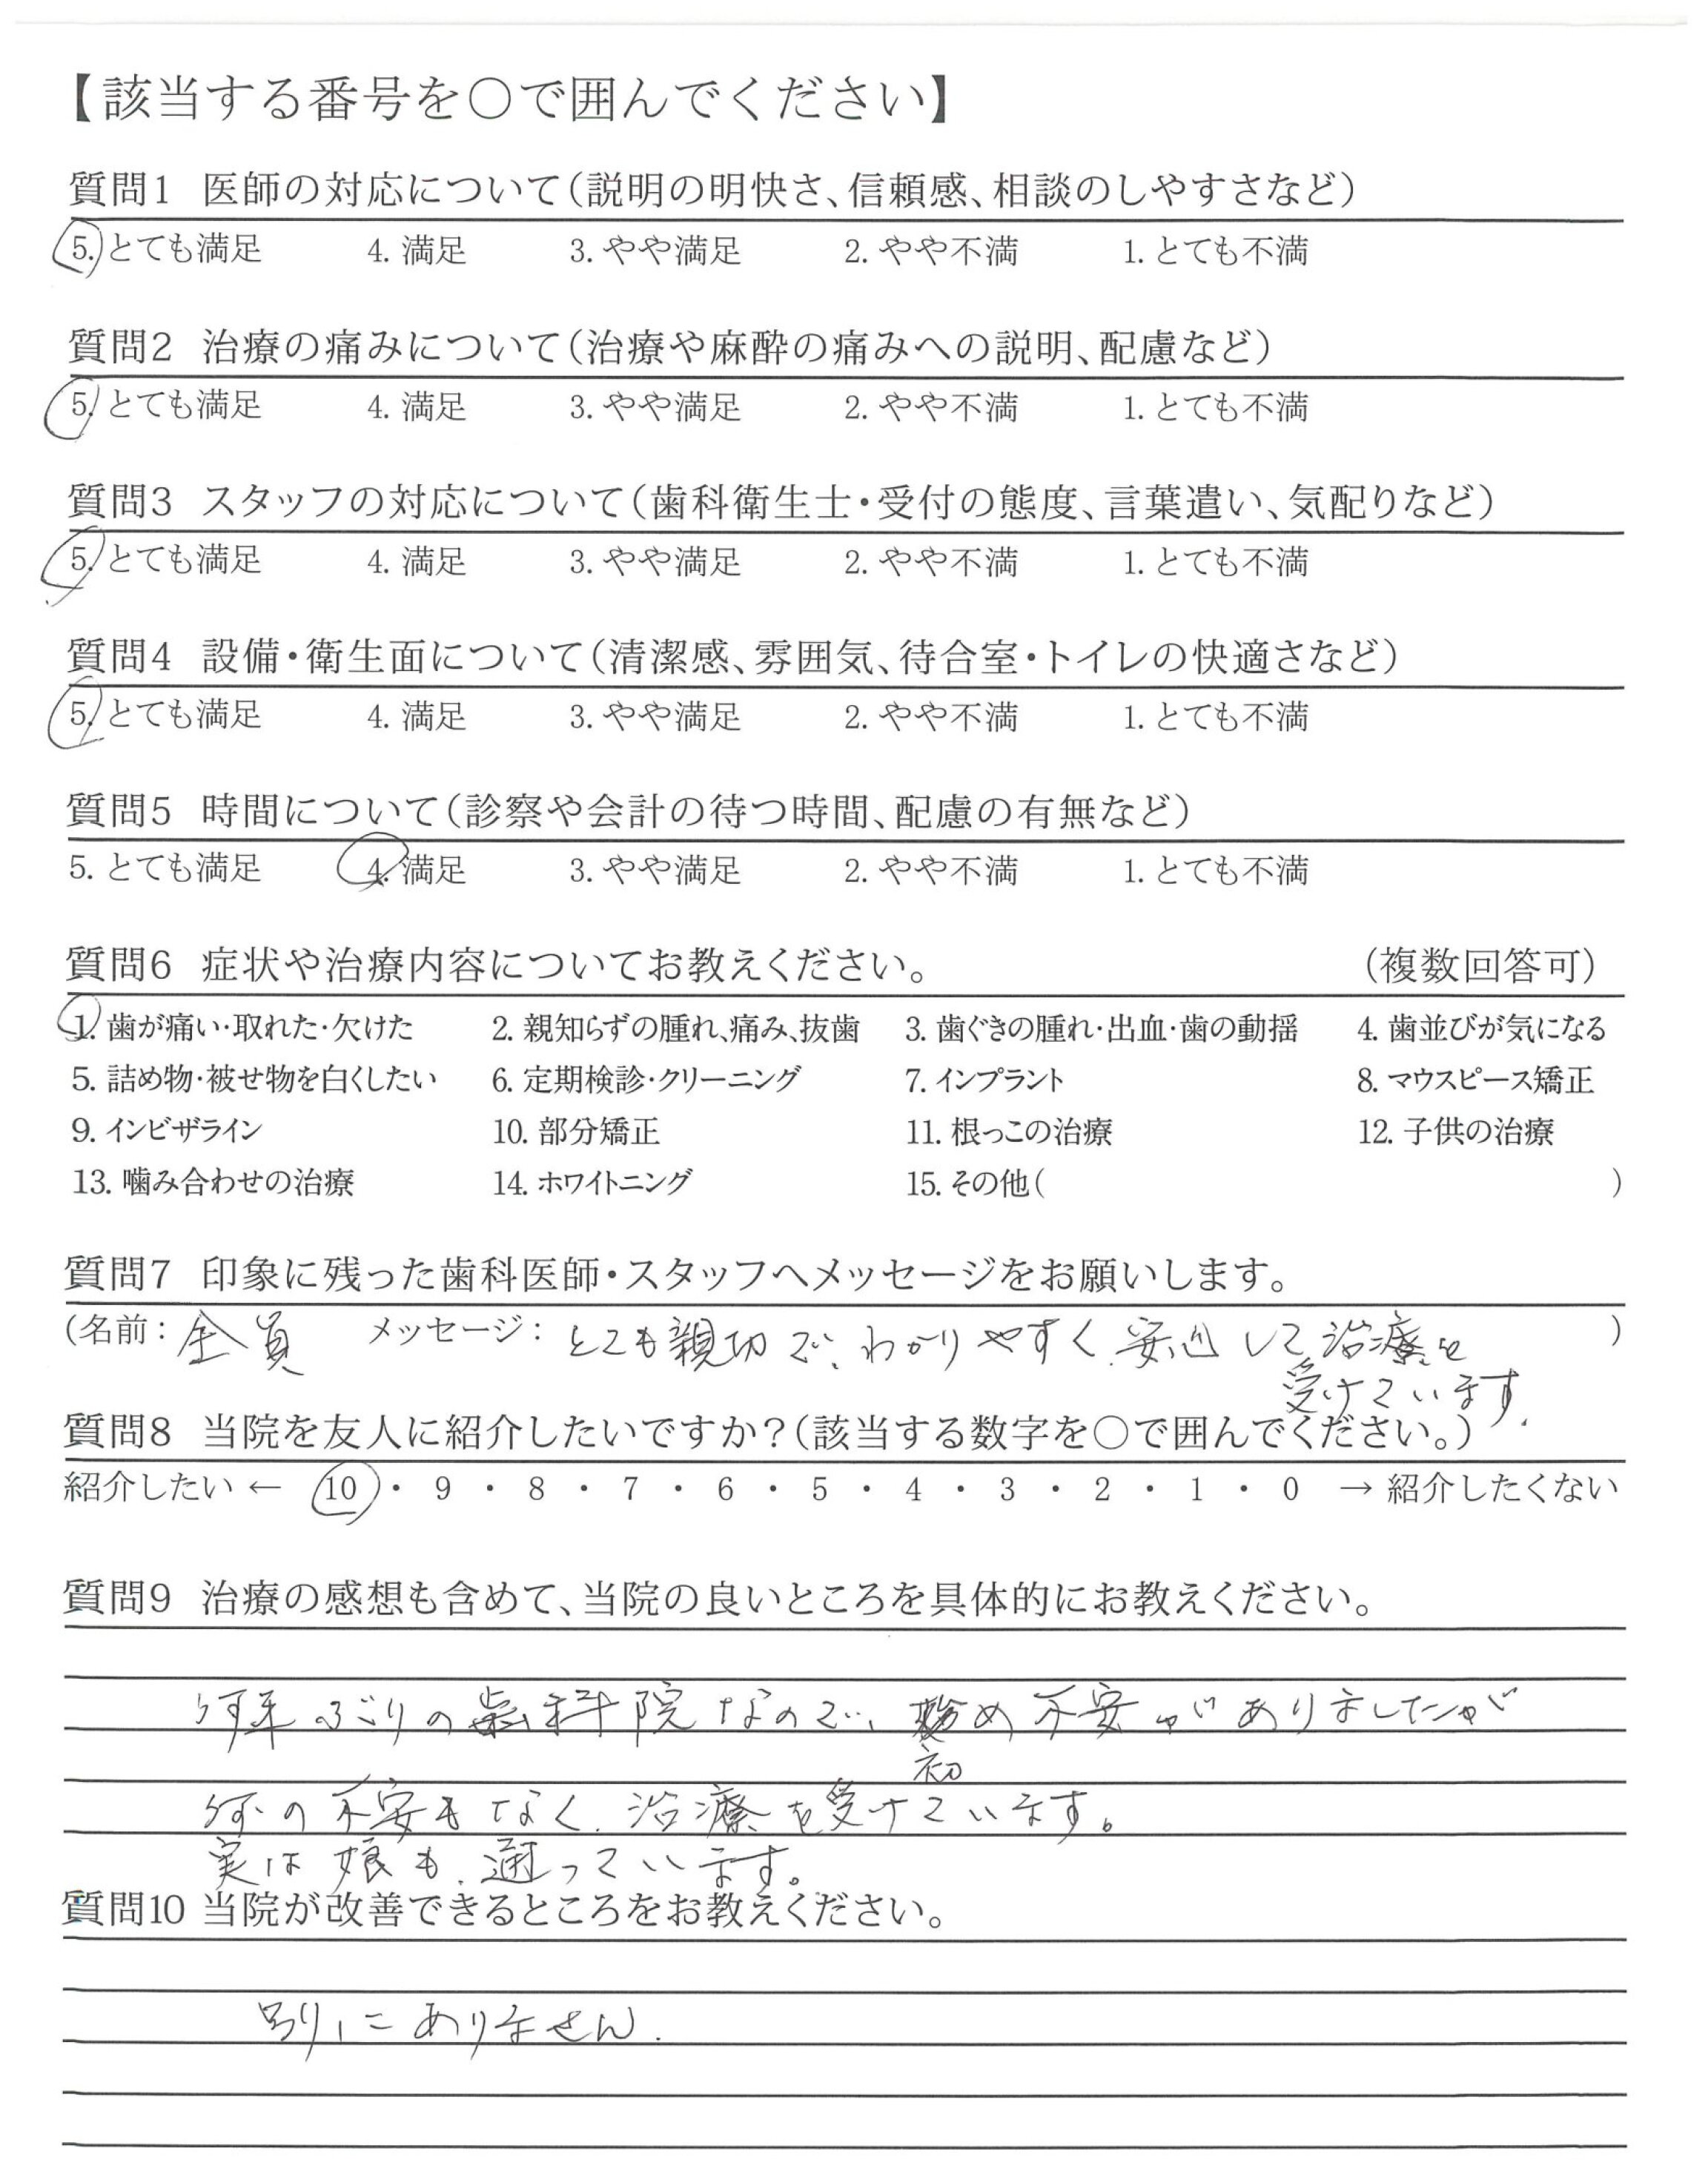 【該当する番号を○で囲んでください】
質問1 医師の対応について（説明の明快さ、信頼感、相談のしやすさなど）
5. とても満足 4. 満足 3. やや満足 2. やや不満 1. とても不満
質問2 治療の痛みについて（治療や麻酔の痛みへの説明、配慮など）
5. とても満足 4. 満足 3. やや満足 2. やや不満 1. とても不満
質問3 スタッフの対応について（歯科衛生士・受付の態度、言葉遣い、気配りなど）
5. とても満足 4. 満足 3. やや満足 2. やや不満 1. とても不満
質問4 設備・衛生面について（清潔感、雰囲気、待合室・トイレの快適さなど）
5. とても満足 4. 満足 3. やや満足 2. やや不満 1. とても不満
質問5 時間について（診察や会計の待つ時間、配慮の有無など）
5. とても満足 4. 満足 3. やや満足 2. やや不満 1. とても不満
質問6 症状や治療内容についてお教えください。 （複数回答可）
1. 歯が痛い・取れた・欠けた 2. 親知らずの腫れ、痛み、抜歯 3. 歯ぐきの腫れ・出血・歯の動揺 4. 歯並びが気になる
5. 詰め物・被せ物を白くしたい 6. 定期検診・クリーニング 7. インプラント 8. マウスピース矯正
9. インビザライン 10. 部分矯正 11. 根っこの治療 12. 子供の治療
13. 噛み合わせの治療 14. ホワイトニング 15. その他（ ）
質問7 印象に残った歯科医師・スタッフへメッセージをお願いします。
（名前： 全員 メッセージ： とても親切で、わかりやすく、安心して治療を ）
受けています.
質問8 当院を友人に紹介したいですか？（該当する数字を○で囲んでください。）
紹介したい ← 10 ・ 9 ・ 8 ・ 7 ・ 6 ・ 5 ・ 4 ・ 3 ・ 2 ・ 1 ・ 0 → 紹介したくない
質問9 治療の感想も含めて、当院の良いところを具体的にお教えください。
何年ぶりの歯科院なので、め不安がありましたが
初
何の不安もなく、治療を受けています。
実は娘も、通っています。
質問10 当院が改善できるところをお教えください。
別にありません.